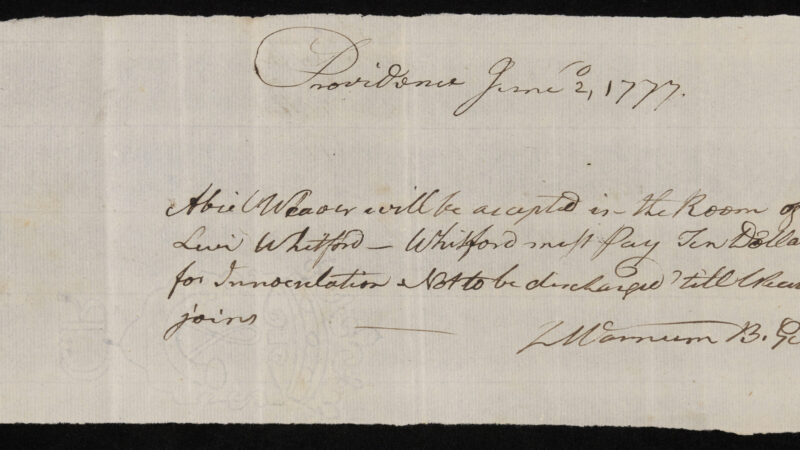 Providence June 2, 1777.
Abiel Weaver will be accepted in the Room of
Levi Whitford — Whitford must Pay Ten Dolla
for Innoculation & Not to be discharged 'till Weav
joins
Varnum B. Ge